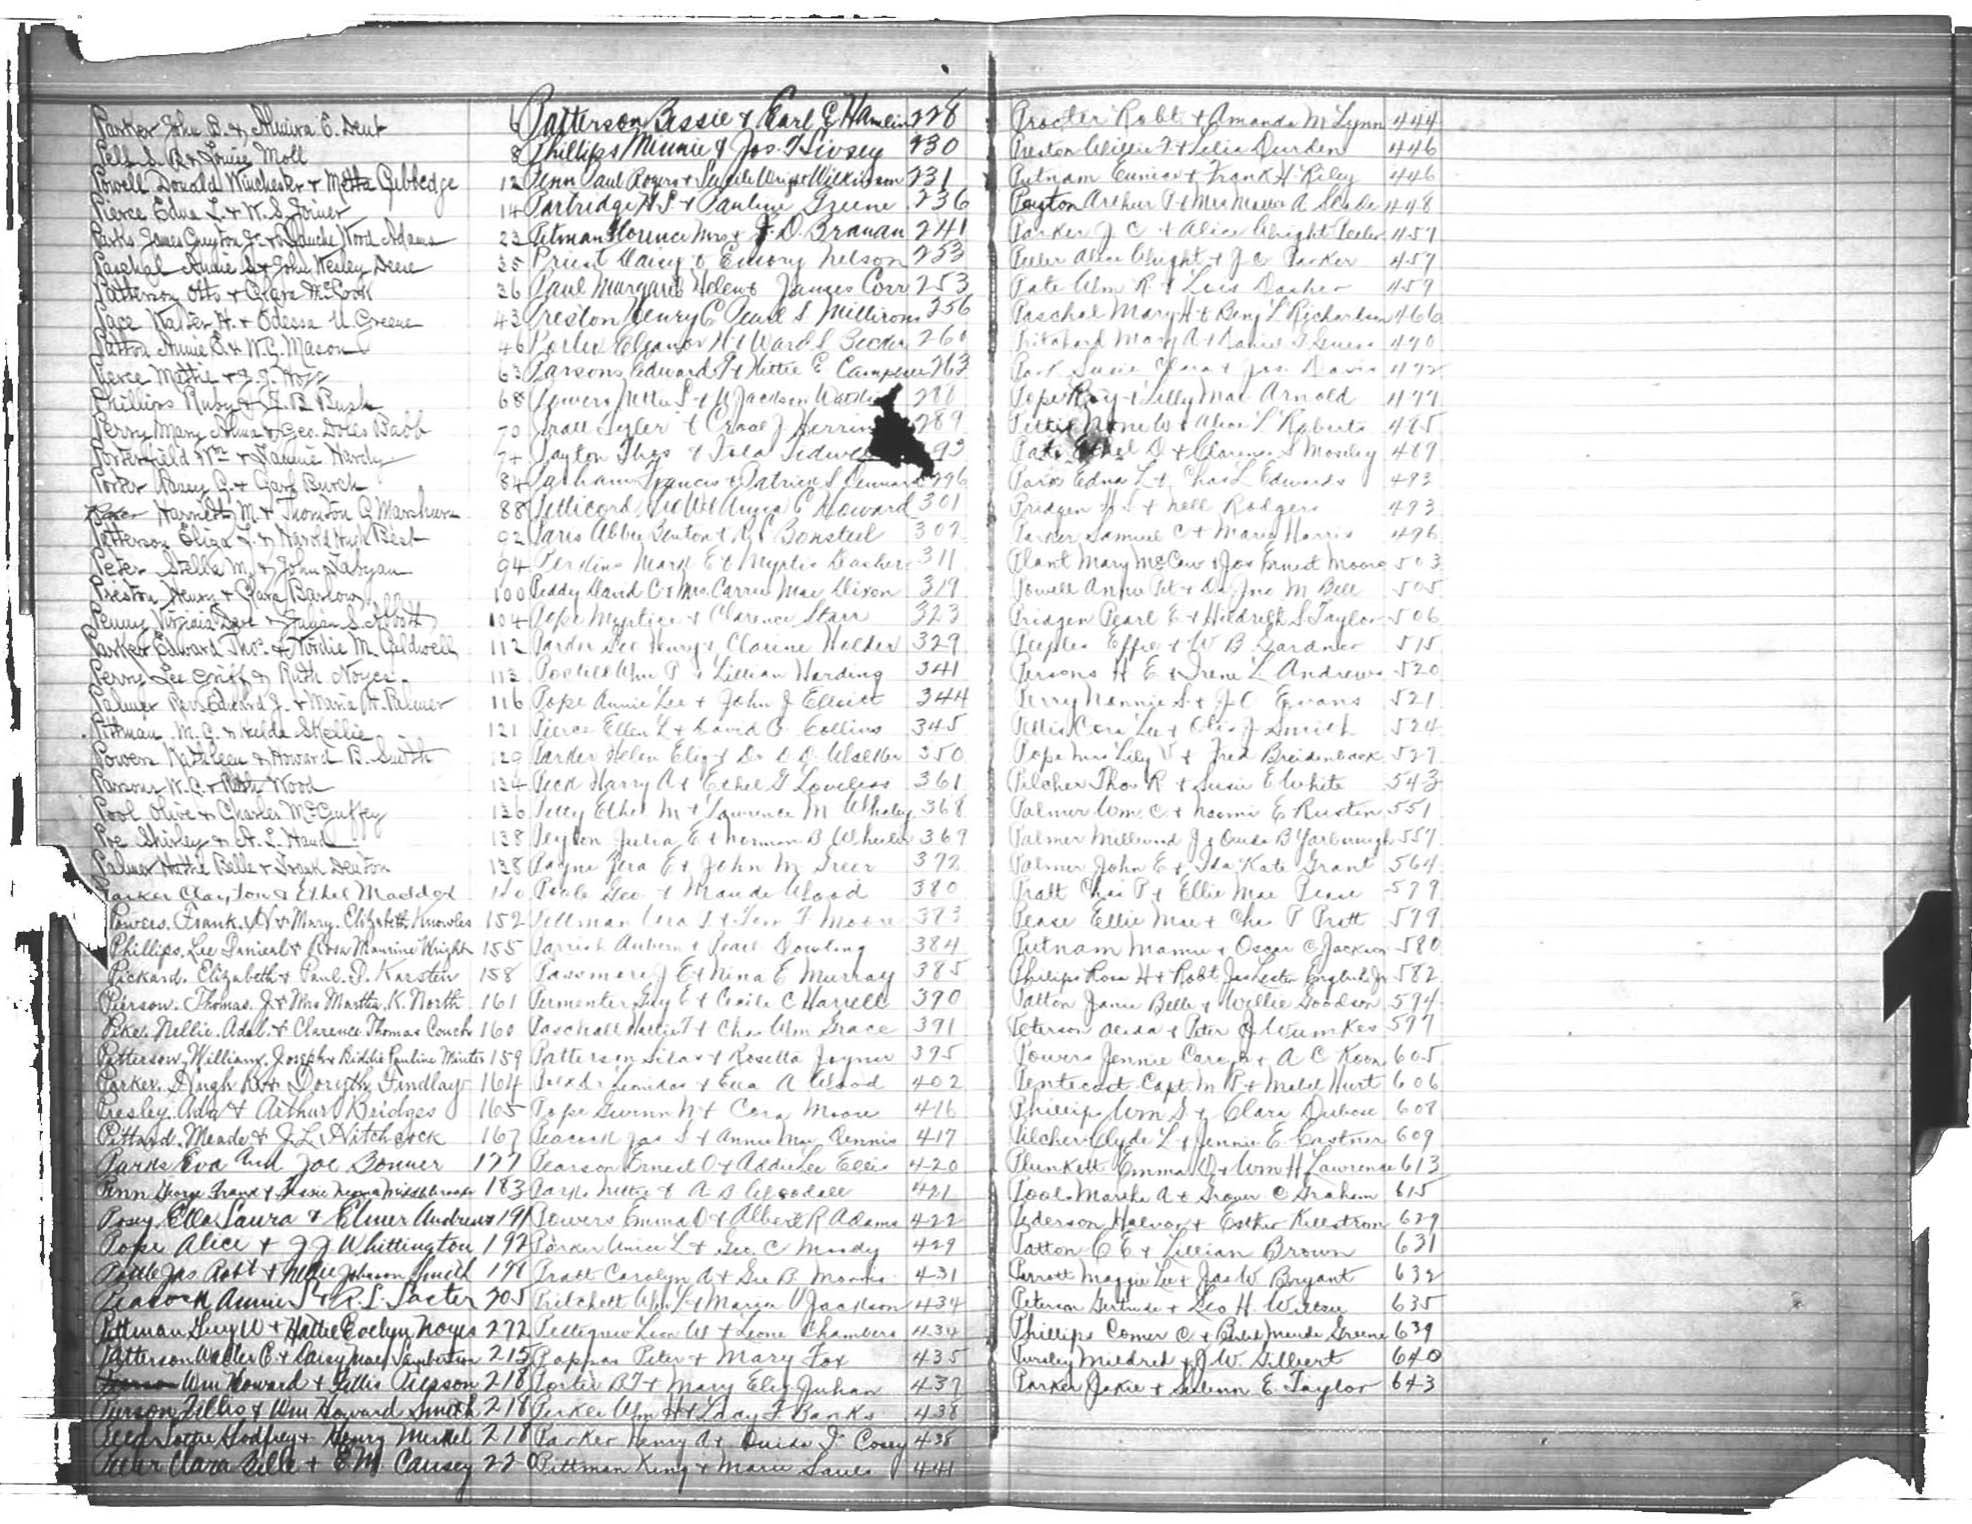 Parker John B. & Almira C. Dent 6
Pell S. B. & Louise Moll 8
Powell Donald Winchester & Metta Gubbedge 12
Pierce Edna L. & W. S. Joiner 14
Parks James Guyton Jr. & Blanche Wood Adams 23
Paschal Annie S. & John Wesley Deese 35
Patterson Otto & Clara McCook 36
Pace Walter H. & Odessa U. Greene 43
Patton Annie E. & W. G. Mason 46
Pierce Mattie & 63
Phillips Ruby & E. B. Bush 68
Perry Mary Alma & Geo. Doles Babb 70
Porterfield Wm & Nannie Hardy 74
Porter Casey G. & Clara Burch 84
Harriett M. & Thornton Q. Marshburn 88
Patterson Eliza L. & Harold Hugh Best 92
Peter Stella M. & John Nabyan 94
Preston Henry & Clara Barlow 100
Penny Virginia Dent & Julian S. Abbott 104
Parker Edward Thos. & Nordie M. Caldwell 112
Perry Lee Griff & Ruth Noyce 113
Palmer Rev. Edward J. & Maria H. Palmer 116
Pittman M. C. & Hulda Skellie 121
Powers Kathleen & Howard B. Smith 129
Parsons W. C. & Ruth Wood 134
Pool Olive & Charles McGuffey 136
Poe Shirley & A. L. Hand 138
Palmer Hattie Belle & Frank Denton 138
Parker Clayton & Ethel Maddox 140
Powers. Frank. N. & Mary. Elizabeth Knowles 152
Phillips. Lee Danieral & Rosa Maurine Wright 155
Pickard. Elizabeth & Paul. D. Karsten 158
Pierson. Thomas. J. & Mrs Martha. K. North 161
Pike. Nellie. Adel. & Clarence Thomas Couch 160
Patterson, William, Joseph & Biddie Pauline Minter 159
Parker. Hugh R. & Doroyth Findlay 164
Presley. Ada & Arthur Bridges 165
Pittard. Meade & J. L. Hitchcock 167
Parks Eva and Joe Bonner 177
Penn George Frank & Jessie Neoma Middlebrooks 183
Posey Ella Laura & Elmer Andrews 191
Pope Alice & J J Whittington 192
Pottle Jas Robt & Nellie Johnson Smith 198
Peacock Annie S & R. L. Lacter 205
Pittman Guy W & Hattie Evelyn Noyes 272
Patterson Walter C. & Daisy Mae Lambertson 215
Wm Howard & Lillis Pierson 218
Pierson Lillis & Wm Howard Smith 218
Peed Lottie Godfrey & Henry Merkel 218
Peeler Clara Belle & E M Causey 220
Patterson Bessie & Earl E Hamlin 228
Phillips Minnie & Jos. T Livsey 230
Penn Paul Rogers & Lucile Wright Wilkinson 231
Partridge H S & Pauline Greene 236
Pitman Florence Mrs & J. D. Branan 241
Priest Daisy & Emory Nelson 253
Paul Margaret Helen & James Corr 253
Preston Henry C Pearl S Millirons 256
Porter Eleanor H & Ward S Becker 260
Parsons Edward T & Hittie E Campbell 263
Powers Nettie S & W Jackson 280
Pratt Tyler & Craol J Herrin 289
Payton Thos & Iola Tidwell 93
Parham Francis & Patrick S Dennard 296
Pellicord 301
Paris Abbie Benton & R C Bonsteel 307
Perkins Mark E & Myrtis Dasher 311
Peddy David C & Mrs Carrie Mae Dixon 319
Pope Myrtice & Clarence Starr 323
Pardue Geo Henry & Clarine Holder 329
Postell Wm P & Lillian Harding 341
Pope Annie Lee & John J Elliott 344
Pierce Ellen L & David C. Collins 345
Pardee Helen Eliz & Dr D D Walker 350
Peck Harry A & Ethel G Loveless 361
Petty Ethel M & Lawrence M Whaley 368
Peyton Julia E & Norman B Wheeler 369
Payne Zera E & John M Greer 372
Poole Geo & Maude Wood 380
Pellman Vera S & Tom T Moore 383
Parrish Auburn & Pearl Dowling 384
Passmore J E & Nina E Murray 385
Permenter Guy E & Cecile C Harrell 390
Paschall Hattie T & Chas Wm Grace 391
Patterson Silas & Rosella Joyner 395
Leonidas & Eva A Wood 402
Pope Gwinn N & Cora Moore 416
Peacock Jas S & Annie Mae Dennis 417
Pearson Ernest O & Addie Lee Ellis 420
Park Nettie & A S Woodall 421
Powers Emma O & Albert R Adams 422
Parker Unice L & Geo. C Moody 429
Pratt Carolyn A & Geo B Morris 431
Pritchett Wm L & Margie V Jackson 434
Pettigrew Leon W & Leone Chambers 434
Pappas Peter & Mary Fox 435
Porter B T & Mary Eliz Juhan 437
Parker Wm H & Lucy F Banks 438
Parker Henry A & Ouida F Cosey 438
Pittman King & Marie Sauls 441
Procter Robt & Amanda M Lynn 444
Preston Willie T & Lelia Durden 446
Putnam Eunice & Frank H Riley 446
Peyton Arthur P & Mrs Mattie A 448
Parker J C & Alice Wright Peeler 457
Peeler Alice Wright & J C Parker 457
Pate Wm R & Lois Dasher 459
Paschal Mary H & Benj L Richardson 466
Pritchard Mary A & Daniel G 470
Park Susie Clara & Jas Davis 472
Pope Roy & Lilly Mae Arnold 477
Pettis None W & Alice L Roberts 485
Pate Ethel D & Clarence S Moseley 489
Park Edna L & Chas L Edwards 493
Pridgen H S & Nell Rodgers 493
Parker Samuel C & Marie Harris 496
Plant Mary McCaw & Jos Ernest Moore 503
Powell Annie Pet & Dr Jno M Bell 505
Pridgen Pearl E & Hildreth S Taylor 506
Peeples Effie & W B Gardner 515
Persons H E & Irene L Andrews 520
Perry Nannie S & J C Evans 521
Pettis Cora Lee & Otis J Smith 524
Pope Mrs Lily V & Fred Breidenback 527
Pilcher Thos R & Susie E White 543
Palmer Wm. C & Naomi E Rustin 551
Palmer Millwood J & Ouida B Yarborough 557
Palmer John E & Ida Kate Grant 564
Pratt Chas P & Ellie Mae Pease 579
Pease Ellie Mae & Chas P Pratt 579
Putnam Mamie & Oscar C Jackson 580
Phillips Rosa H & Robt Jas Lester English Jr 582
Patton Janie Belle & Willie Goodson 594
Peterson Alida & Peter J Wumkes 597
Powers Jennie Carolyn & A C Koon 605
Pentecost Capt M P & Mabel Hurt 606
Phillips Wm S & Clara Dubose 608
Pilcher Clyde L & Jennie E Eastner 609
Plunkett Emma D & Wm H Lawrence 613
Pool Martha A & Grover C Graham 615
Pederson Halvor & Esther Killstrom 629
Patton C E & Lillian Brown 631
Parrott Maggie Lee & Jas W Bryant 632
Peterson Gertrude & Leo H. Wiltsee 635
Phillips Comer C & Maude Greene 639
Pursley Mildred & J W. Gilbert 640
Parker Jakie & E. Taylor 643